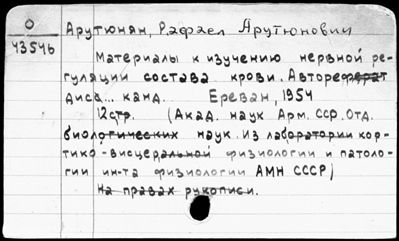 О
43546
Арутюнян, Рафаел Арутюнович
Материалы к изучению нервной ре-
гуляции состава крови. Автореферат
дисс... канд. Ереван, 1954
12стр. (Акад. наук Арм. ССР. Отд.
биологических наук. Из лаборатории кор-
тико-висцеральной физиологии и патоло-
гии ин-та физиологии АМН СССР)
На правах рукописи.